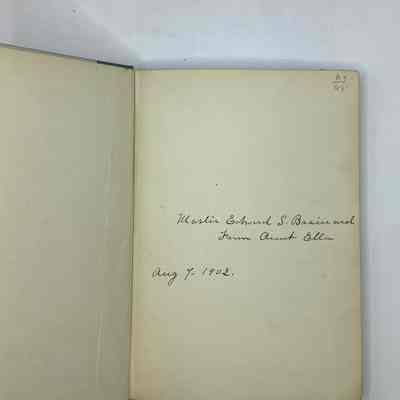 Master Edward S. Brainard
From Aunt Ella
Aug 7. 1902.